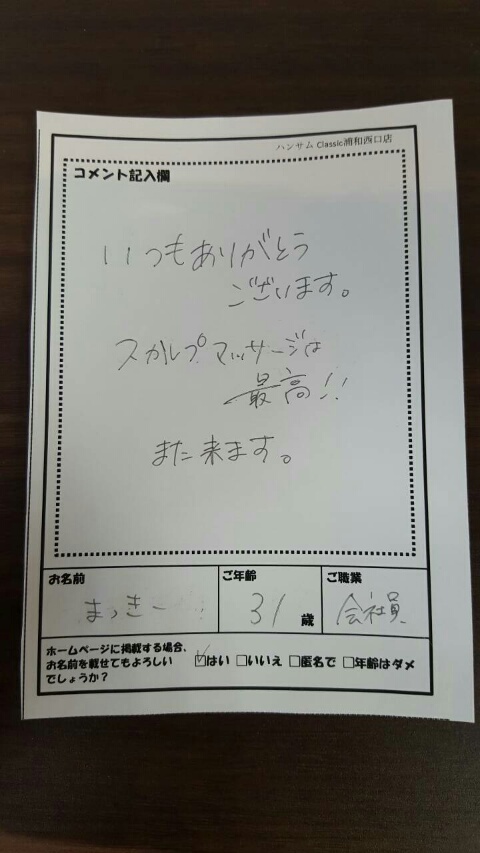 ハンサム Classic浦和西口店
コメント記入欄
いつもありがとう
ございます。
スカルプマッサージは
最高!!
また来ます。
お名前
まっきー
ご年齢
31 歳
ご職業
会社員
ホームページに掲載する場合、
お名前を載せてもよろしい
でしょうか?
☑はい □いいえ □匿名で □年齢はダメ